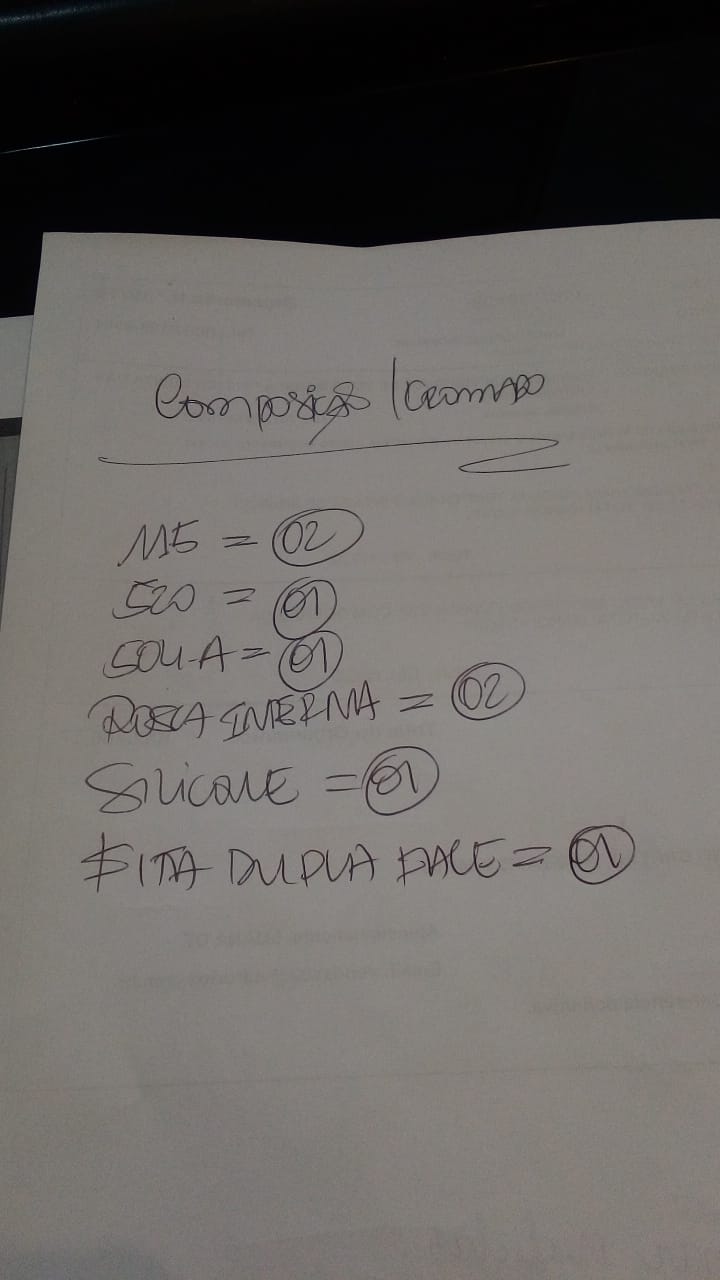 Composição / CROMADO
115 = 02
520 = 01
504-A = 01
ROSCA INTERNA = 02
SILICONE = 01
FITA DUPLA FACE = 01